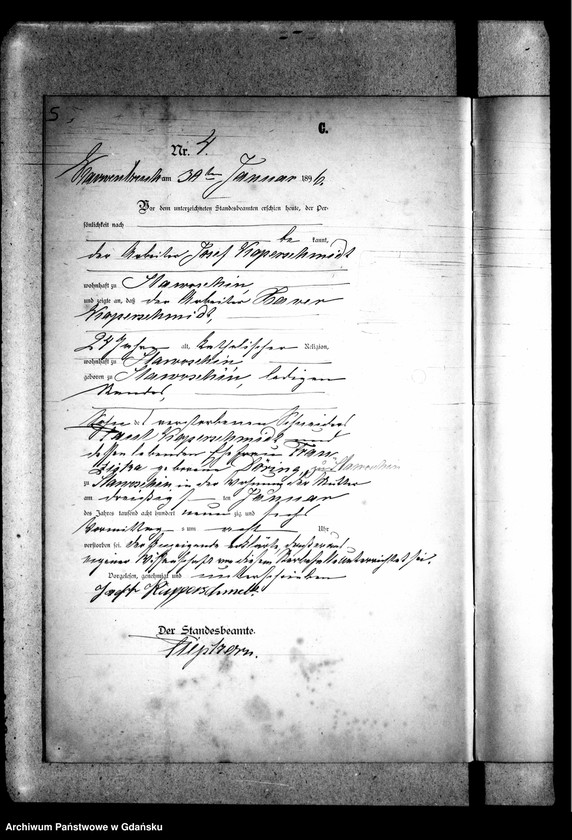 5
C.
Nr. 4.
am 30ten Januar 1896.
Vor dem unterzeichneten Standesbeamten erschien heute, der Per-
sönlichkeit nach
be kannt,
der Arbeiter Josef Kaperschmidt
wohnhaft zu
und zeigte an, daß der Arbeiter Xaver
Kaperschmidt,
24 Jahre alt, katholischer Religion,
wohnhaft zu
geboren zu ledigen
Standes,
Sohn des verstorbenen Schneiders
Kaperschmidt und
dessen lebenden Ehefrau Fran-
ziska geborene Döring, zu
zu in der Wohnung der Mutter
am dreißigsten Januar
des Jahres tausend acht hundert neunzig und sechs
Vormittags um acht Uhr
verstorben sei. Der Anzeigende erklärte, daß er aus
eigener Wissenschaft von diesem Sterbefalle unterrichtet sei.
Vorgelesen, genehmigt und unterschrieben
Der Standesbeamte.
Archiwum Państwowe w Gdańsku